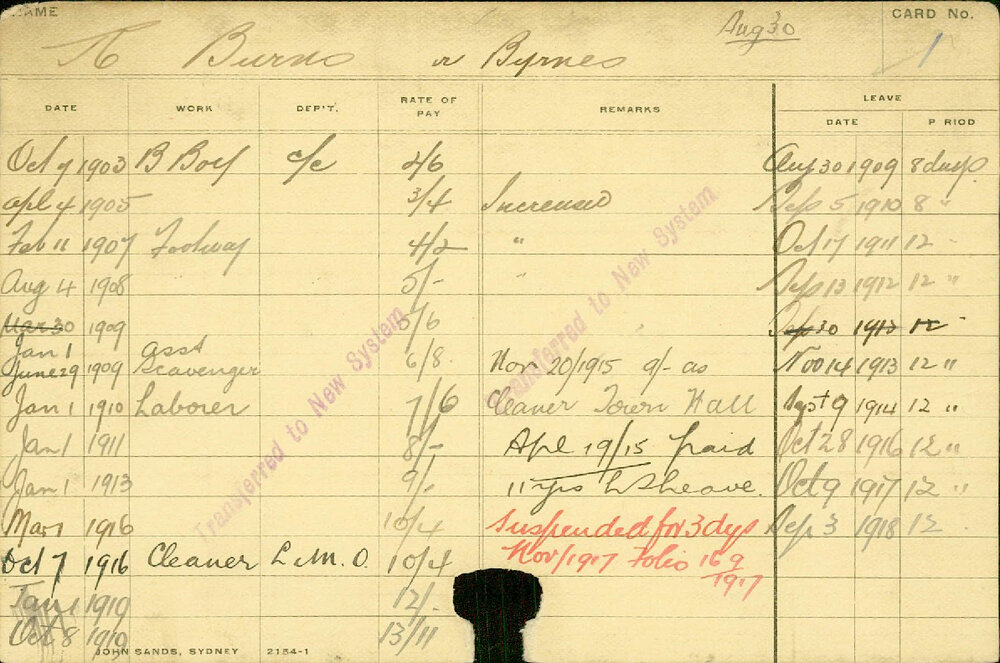 NAME
Aug 30
CARD No.
Burns or Byrnes
1
DATE WORK DEP'T. RATE OF PAY REMARKS LEAVE
DATE P RIOD
Oct 7 1903 B Boy c/c 2/6 Aug 30 1909 8 days
Apl 4 1905 3/4 Increased Sep 5 1910 8 "
Feb 11 1907 Footway 4/2 " Oct 17 1911 12 "
Aug 4 1908 5/- " Sep 13 1912 12 "
Mar 30 1909 5/6 Sep 30 1912 12 "
Jan 1
June 29 1909 Asst Scavenger 6/8 Nov 20/1915 9/- as Nov 14 1913 12 "
Jan 1 1910 Laborer 7/6 Cleaner Town Hall Sept 9 1914 12 "
Jan 1 1911 8/- Apl 19/15 paid Oct 28 1916 12 "
Jan 1 1913 9/- 11 yrs L S leave. Oct 9 1917 12 "
Mar 1 1916 10/4 Suspended for 3 dys Sep 3 1918 12
Oct 7 1916 Cleaner L.M.O. 10/4 Nov/1917 Folio 169/1917
Jan 1 1919 12/-
Oct 8 1919 13/11
Transferred to New System
Transferred to New System
JOHN SANDS, SYDNEY 2154-1